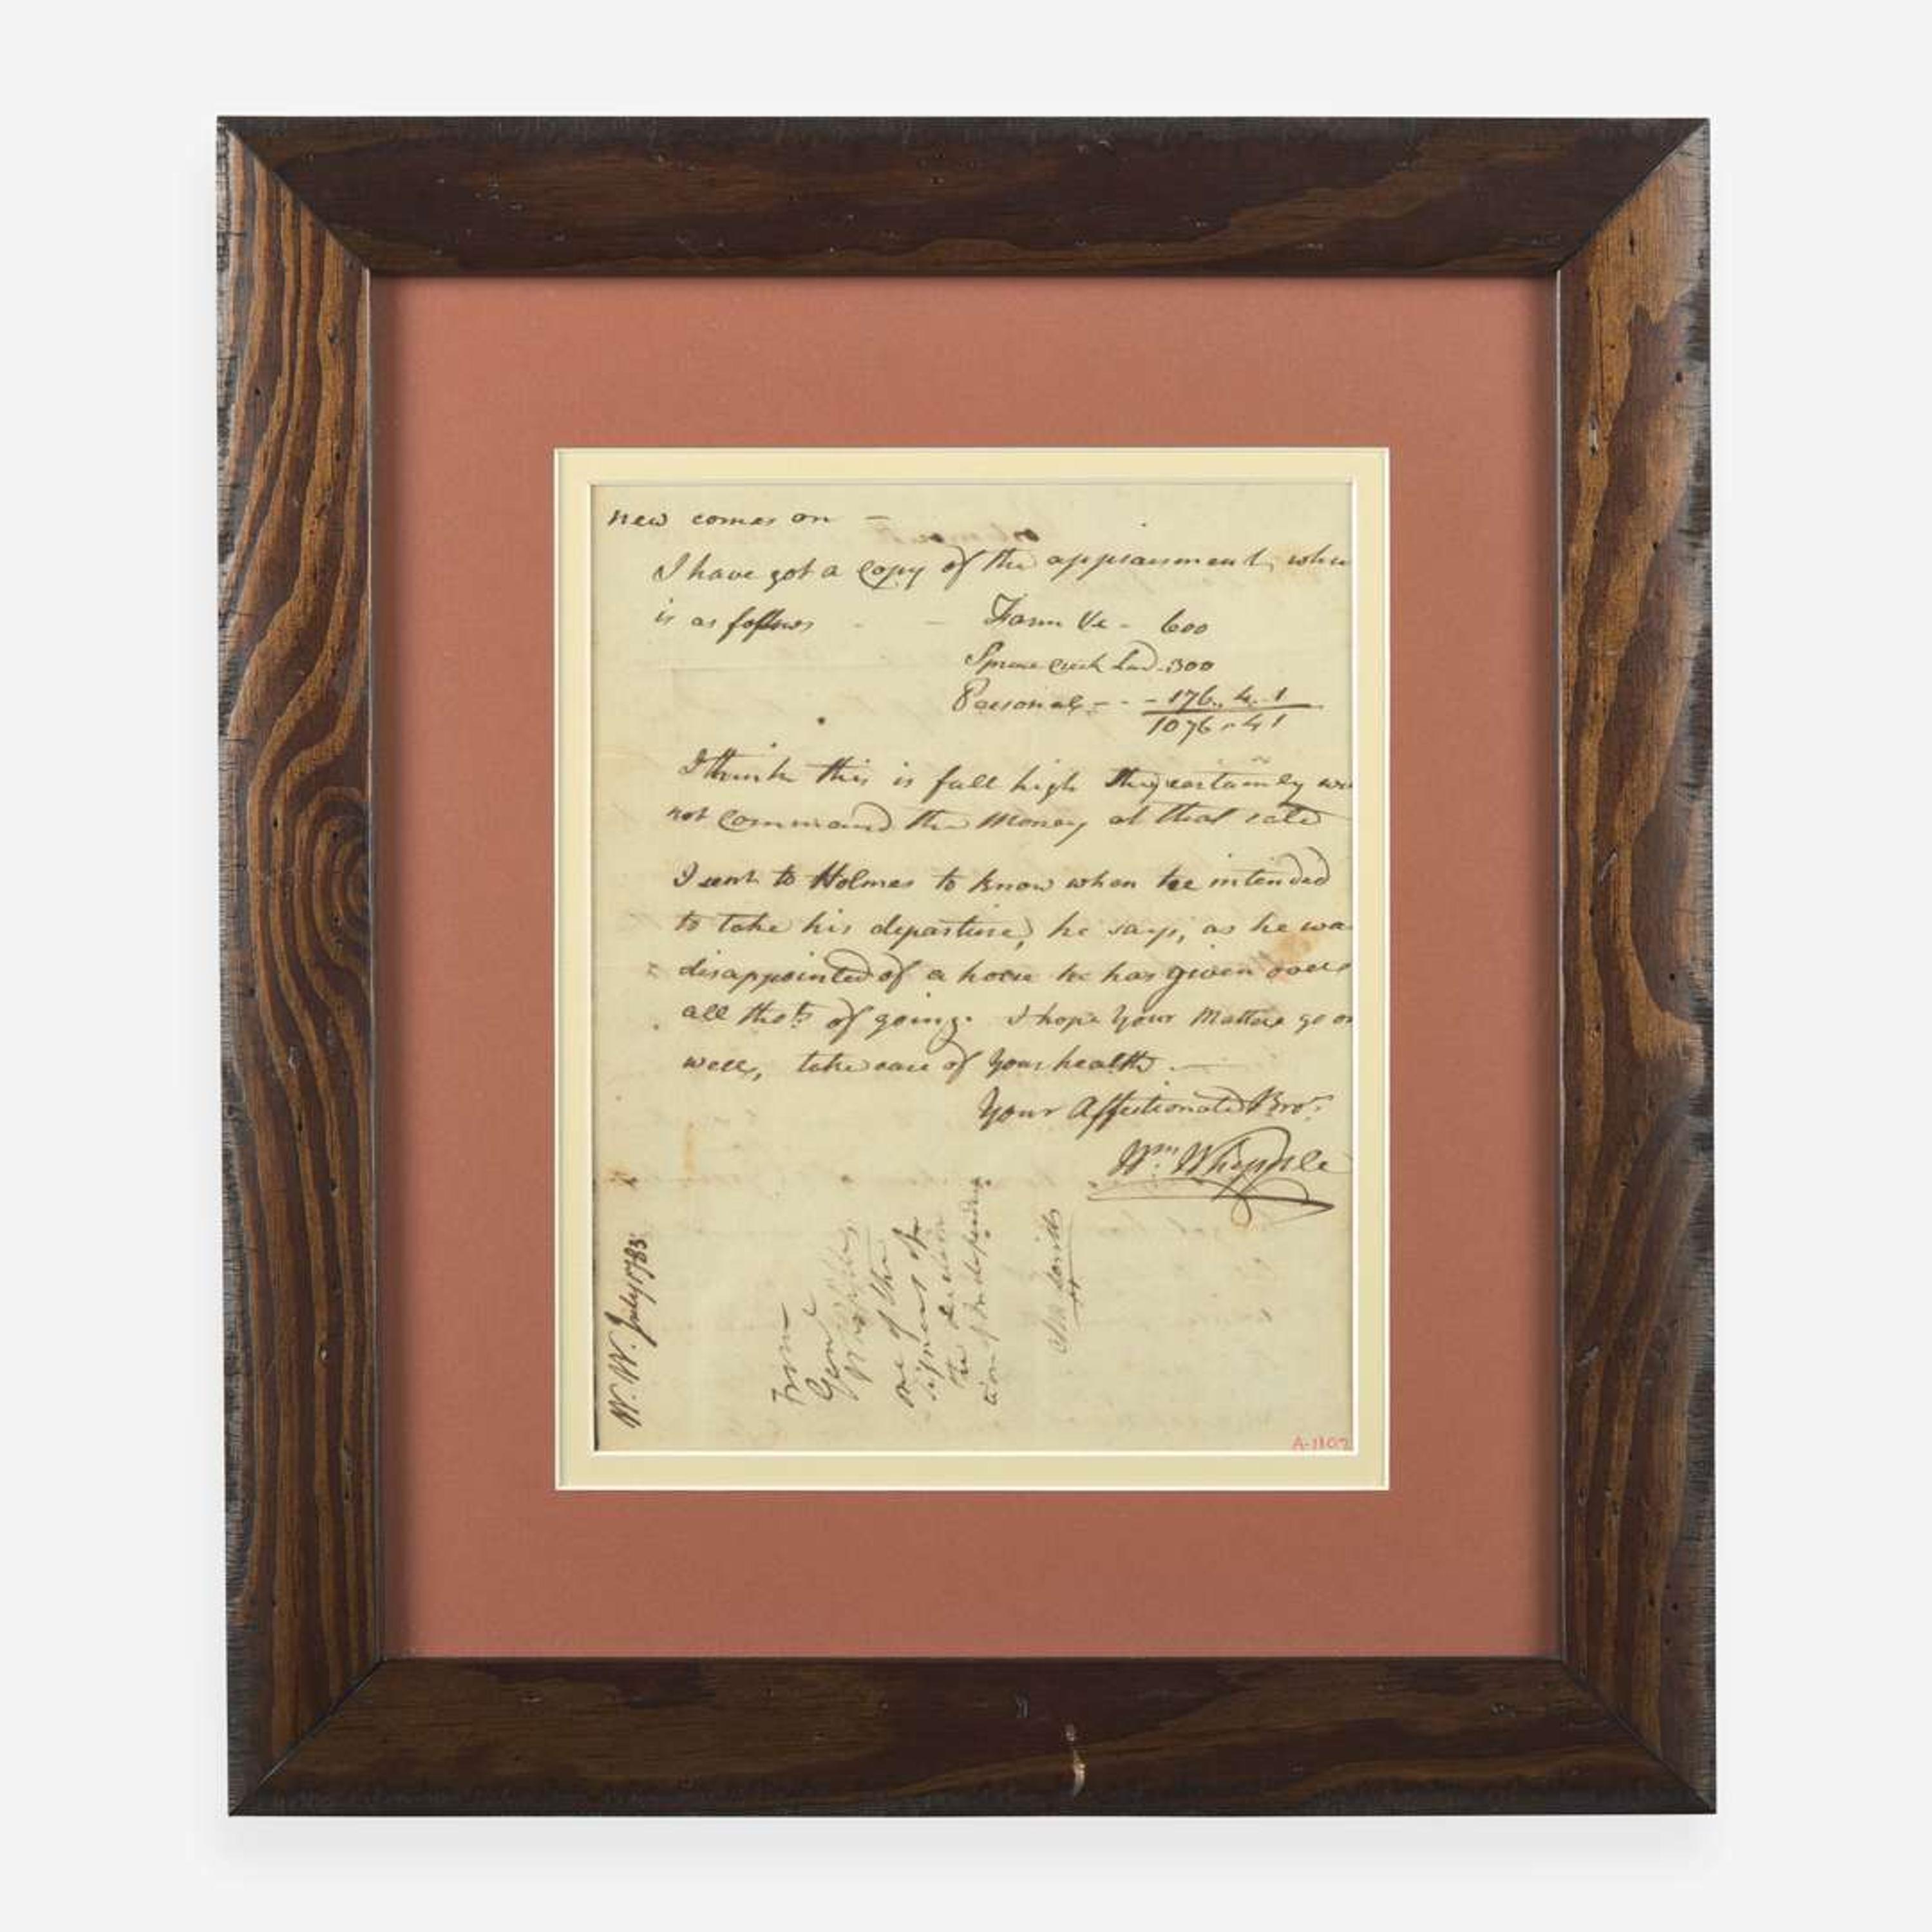 new comes on —
I have got a Copy of the appraisment, whi
is as follows - - Farm &c - 600
Spruce Creek Land - 300
Personal - - - 176.. 4.. 1
1076 " 4 1
I think this is full high they certainly wi
not Command the Money at that rate
I sent to Holmes to know when he intended
to take his departure, he says, as he wa
disappointed of a horse he has given over
all thots of going. I hope Your Matters go on
well, take care of Your health. —
Your Affectionate Bror.
Wm. Whipple
W. W. July 1783
From
Genl
Whipple
one of the
signers of
the declara
tion of Independence
A-1807